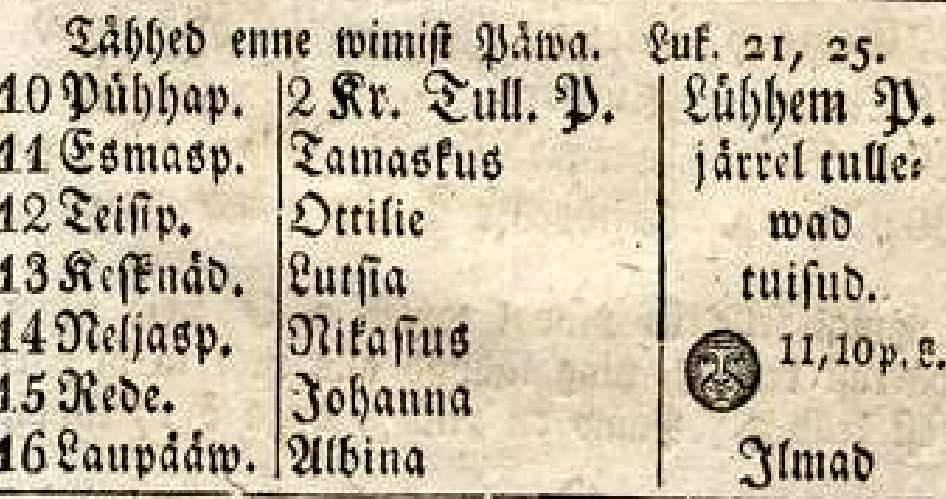 Tähhed enne wimist Päwa. Luk. 21, 25.
10 Pühhap. 2 Kr. Tull. P. Lühhem P.
11 Esmasp. Tamaskus järrel tulle⸗
12 Teisip. Ottilie wad
13 Kesknäd. Lutsia tuisud.
14 Neljasp. Nikasius 11,10 p. L.
15 Rede. Johanna
16 Laupääw. Albina Ilmad